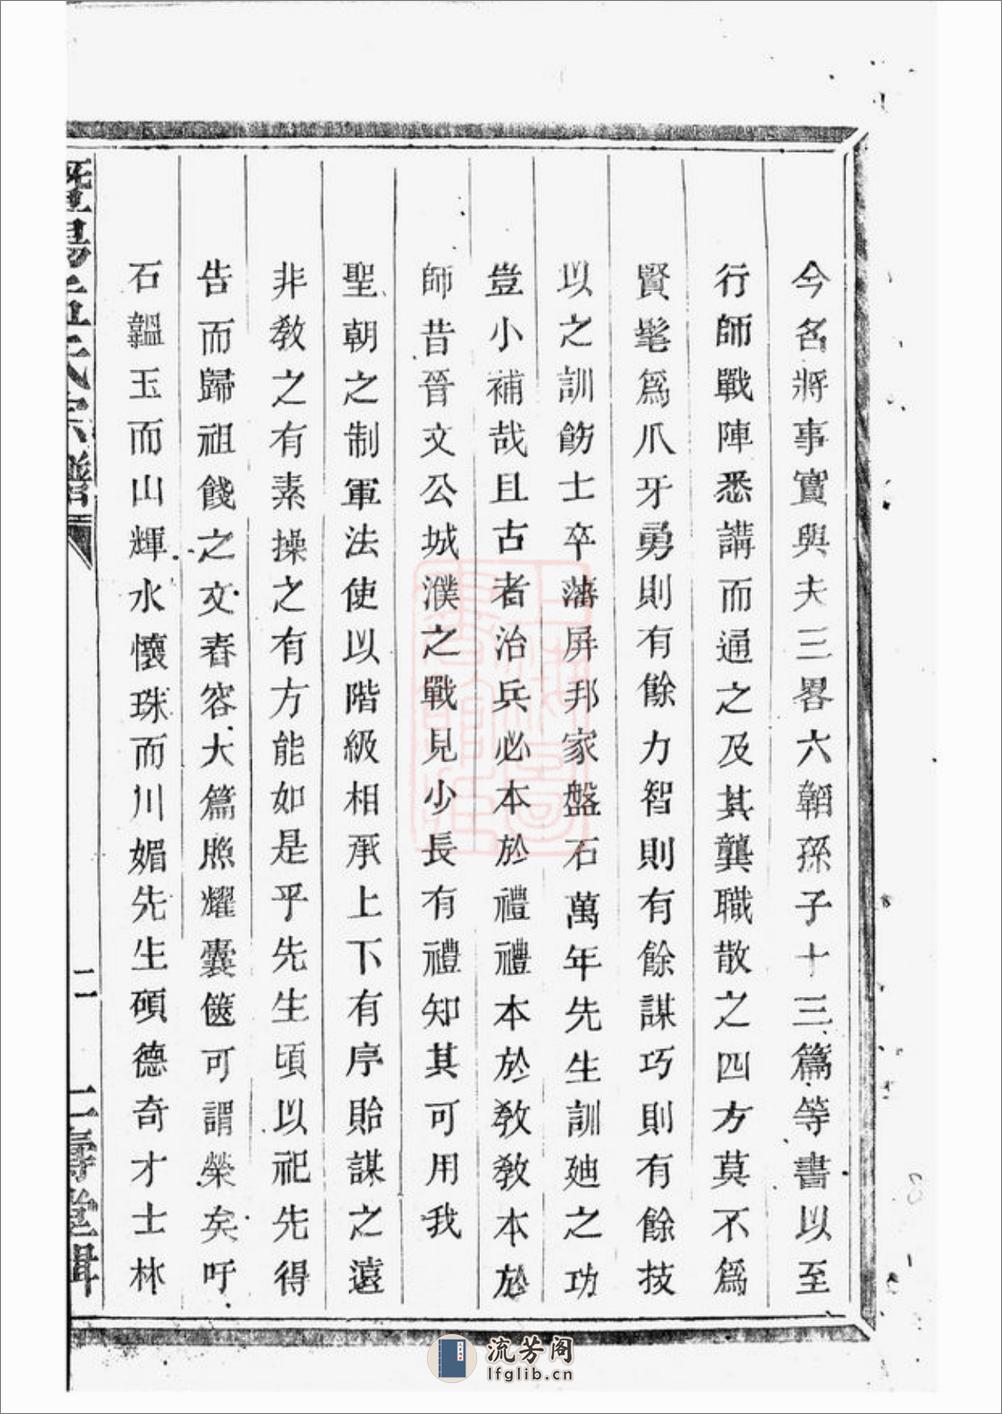 今名將事實與夫三畧六韜孫子十三篇等書以至
行師戰陣悉講而通之及其龔職散之四方莫不爲
賢髦爲爪牙勇則有餘力智則有餘謀巧則有餘技
以之訓飭士卒藩屏邦家盤石萬年先生訓廸之功
豈小補哉且古者治兵必本於禮禮本於教教本於
師昔晉文公城濮之戰見少長有禮知其可用我
聖朝之制軍法使以階級相承上下有序貽謀之遠
非教之有素操之有方能如是乎先生頃以祀先得
告而歸祖餞之文舂容大篇照耀囊篋可謂榮矣吁
石韞玉而山輝水懷珠而川媚先生碩德奇才士林
暨陽孟氏宗譜
二
仁壽堂輯
流芳阁
lfglib.cn